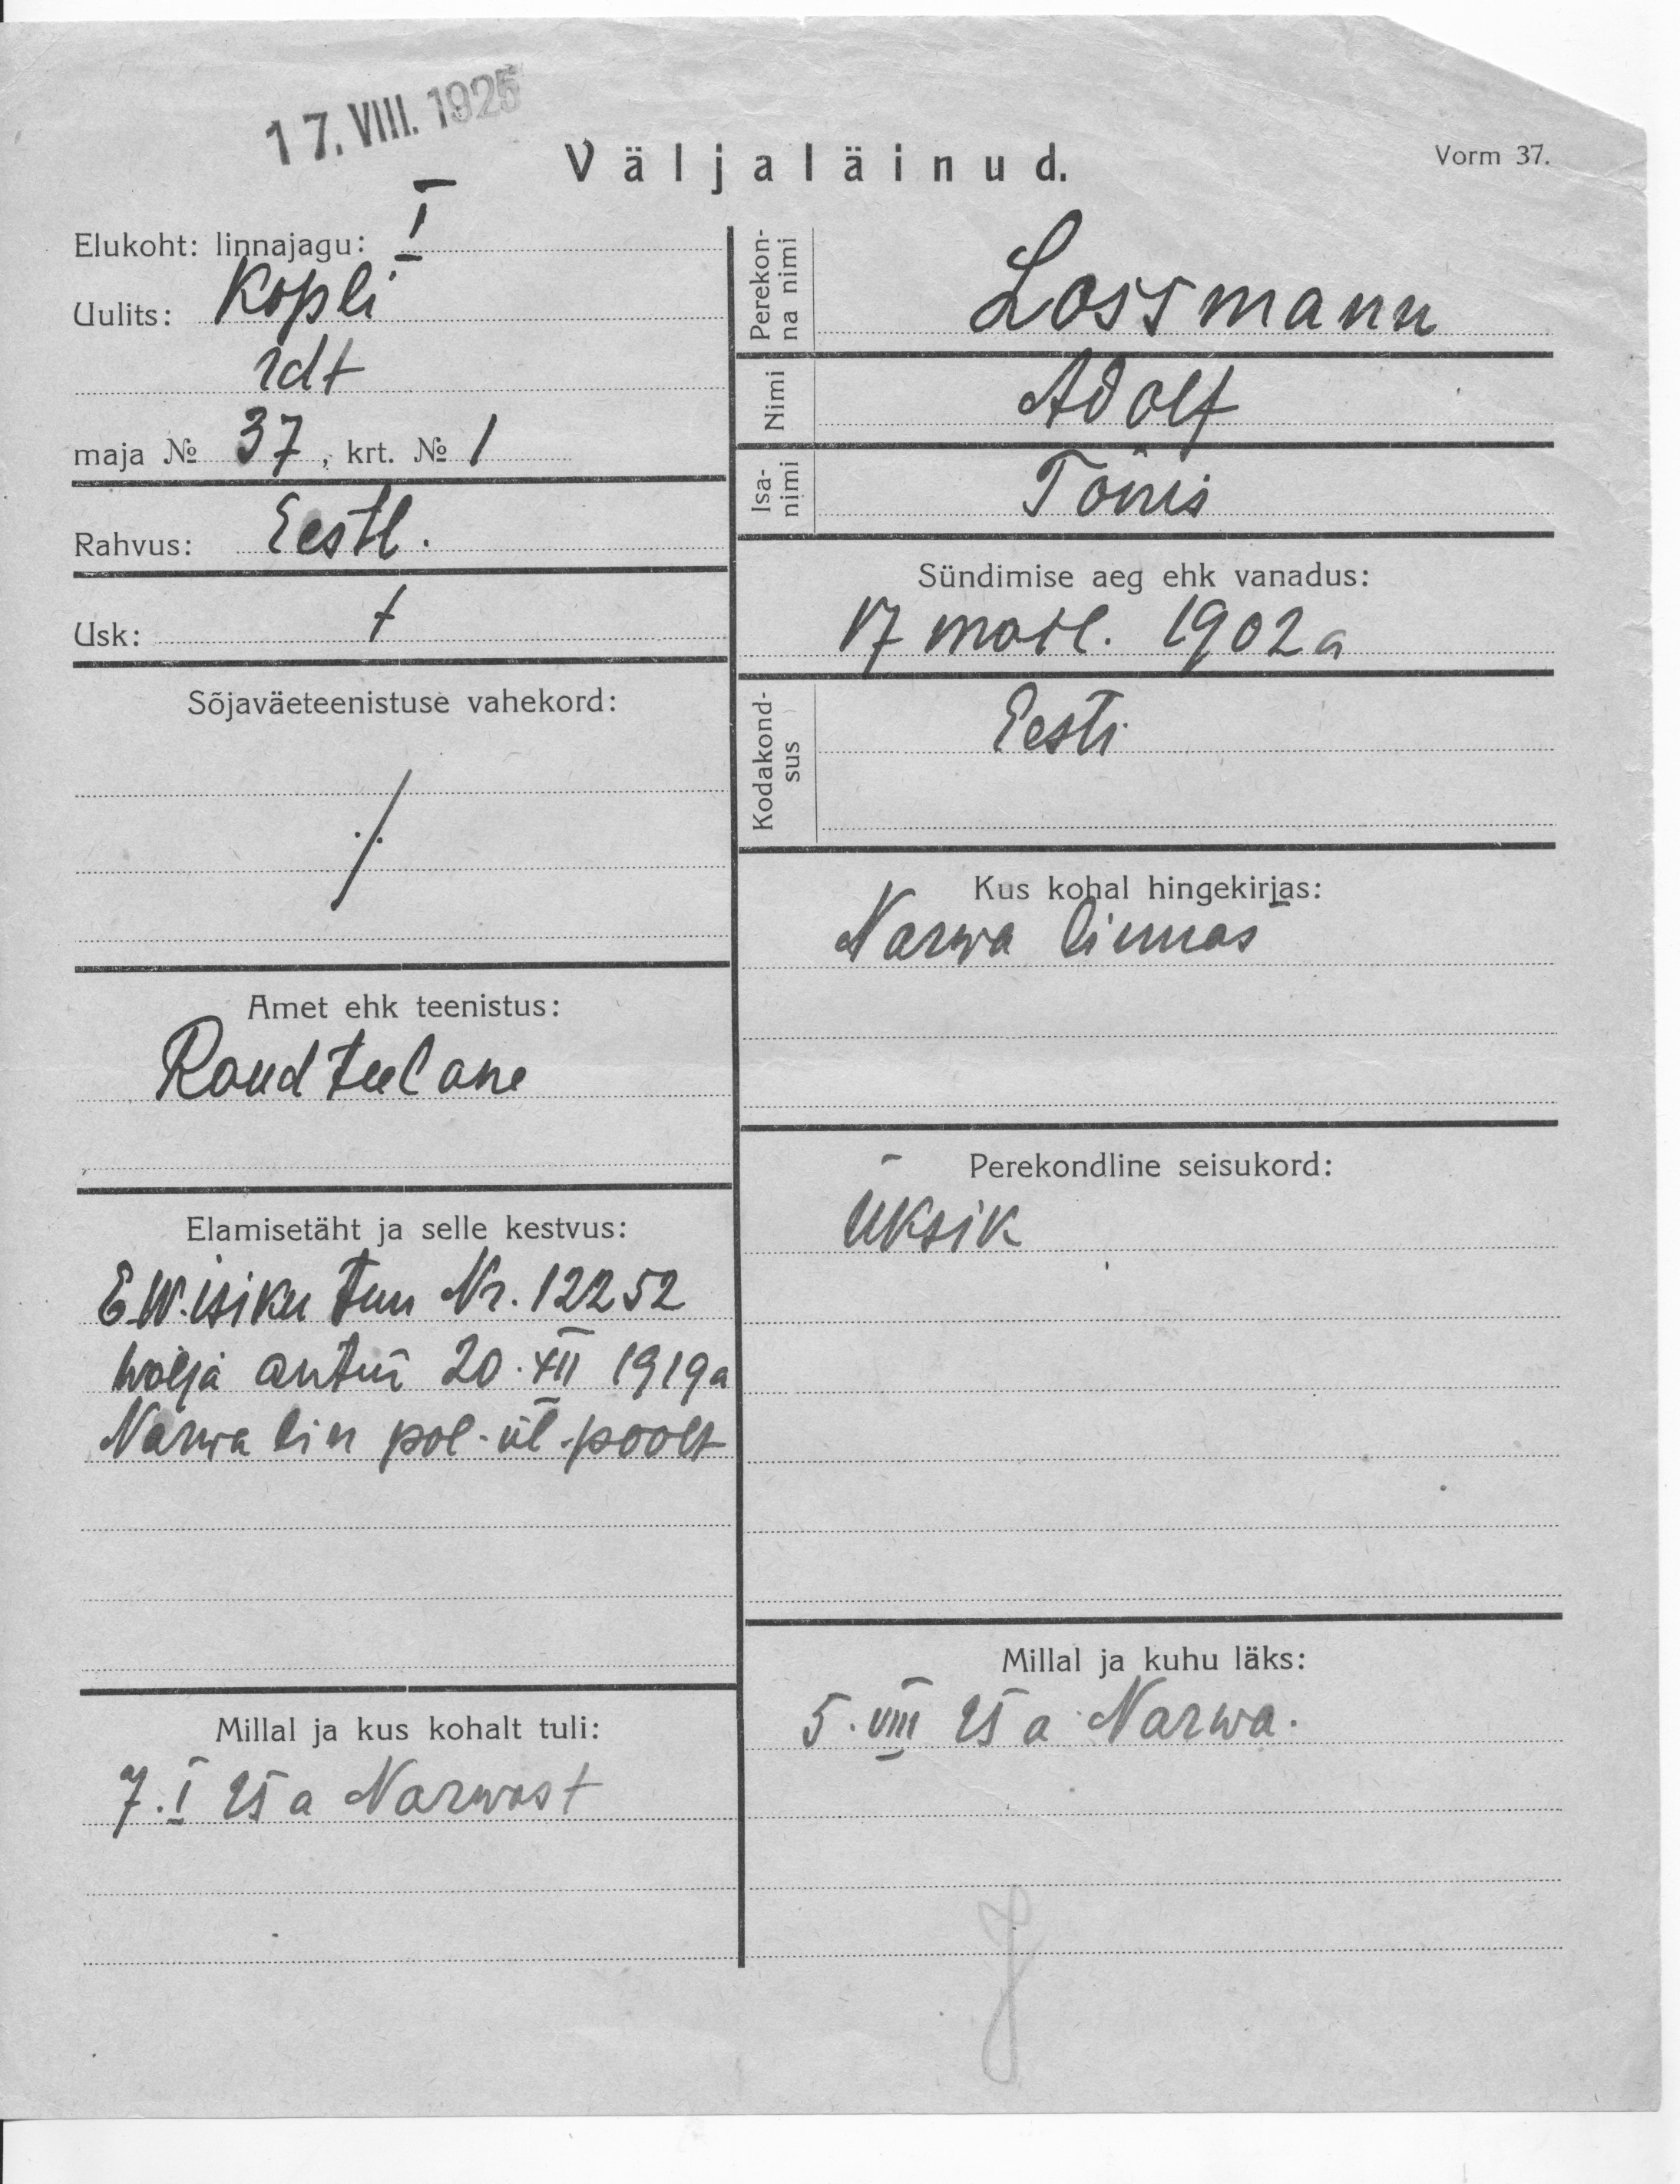 17. VIII. 1925
Väljaläinud.
Vorm 37.
Elukoht: linnajagu: I
Uulits: Kopli
rdt
maja № 37, krt. № 1
Rahvus: Eestl.
Usk: +
Sõjaväeteenistuse vahekord:
./.
Amet ehk teenistus:
Raudteelane
Elamisetäht ja selle kestvus:
E.W. isiku tun Nr. 12252
wälja antud 20. XII 1919 a
Narwa lin pol. ül. poolt
Millal ja kus kohalt tuli:
7. I 25 a Narwast
Perekonna nimi
Lossmann
Nimi
Adolf
Isanimi
Tõnis
Sündimise aeg ehk vanadus:
17 1902 a
Kodakondsus
Eesti
Kus kohal hingekirjas:
Narwa linnas
Perekondline seisukord:
Üksik
Millal ja kuhu läks:
5. VIII 25 a Narwa.